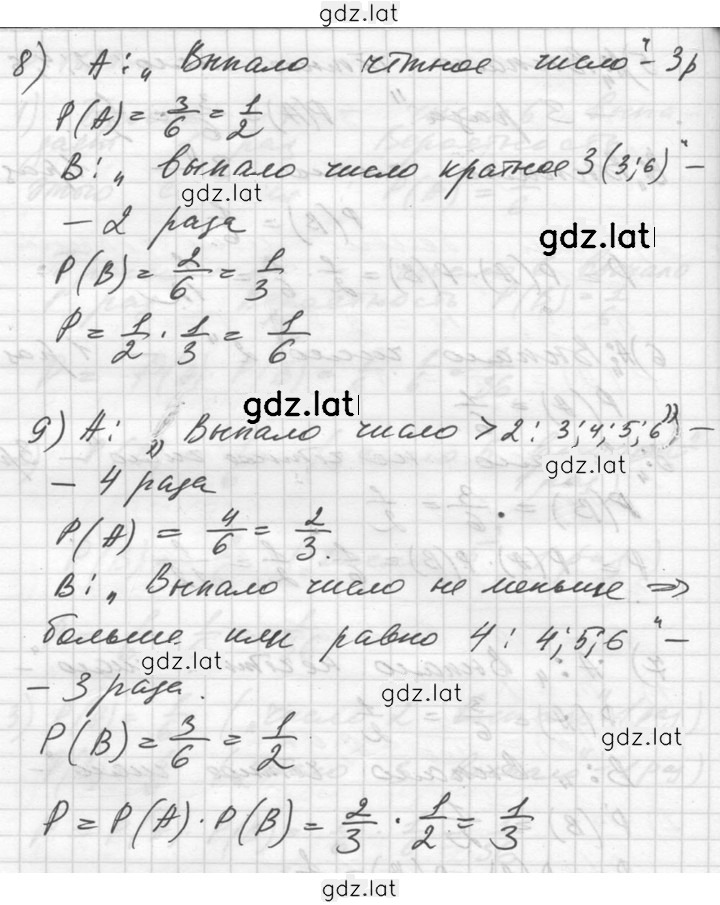 gdz.lat
8) A: „ Выпало чётное число" – 3р
P(A) = 3/6 = 1/2
B: „ выпало число кратное 3 (3; 6)" –
gdz.lat
– 2 раза
gdz.lat
P(B) = 2/6 = 1/3
P = 1/2 · 1/3 = 1/6
gdz.lat
9) A: „ Выпало число > 2 : 3; 4; 5; 6" –
gdz.lat
– 4 раза
P(A) = 4/6 = 2/3.
B: „ Выпало число не меньше =>
больше или равно 4 : 4; 5; 6 " –
gdz.lat
– 3 раза.
gdz.lat
P(B) = 3/6 = 1/2
gdz.lat
P = P(A) · P(B) = 2/3 · 1/2 = 1/3
gdz.lat